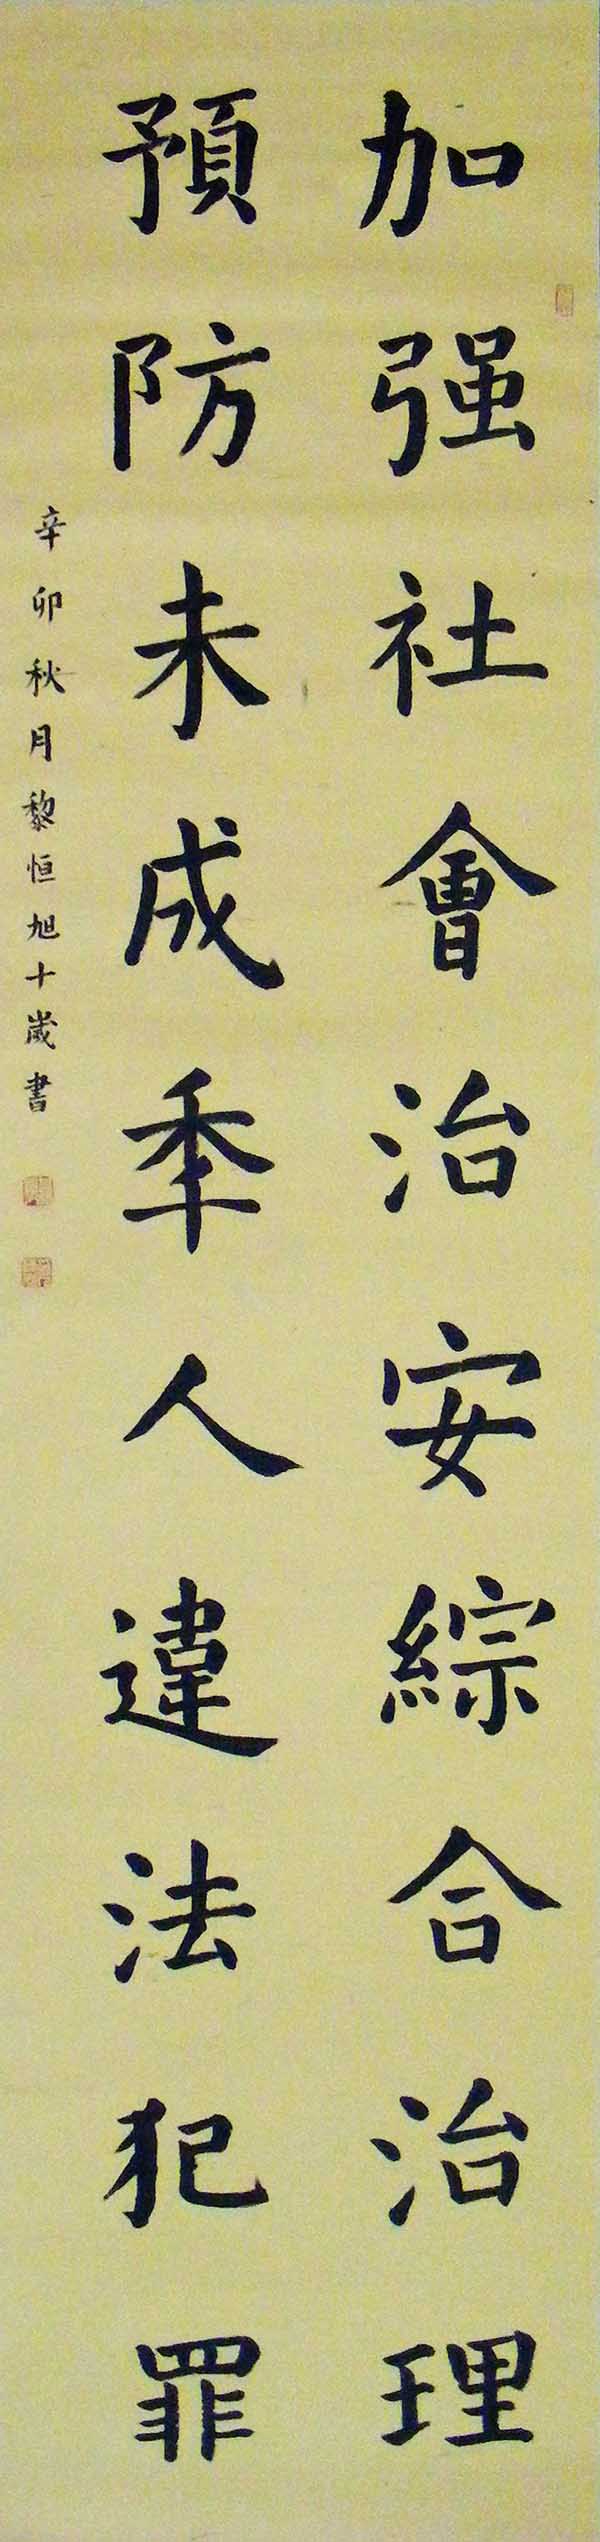 加强社會治安綜合治理
預防未成秊人違法犯罪
辛卯秋月黎恒旭十歲書